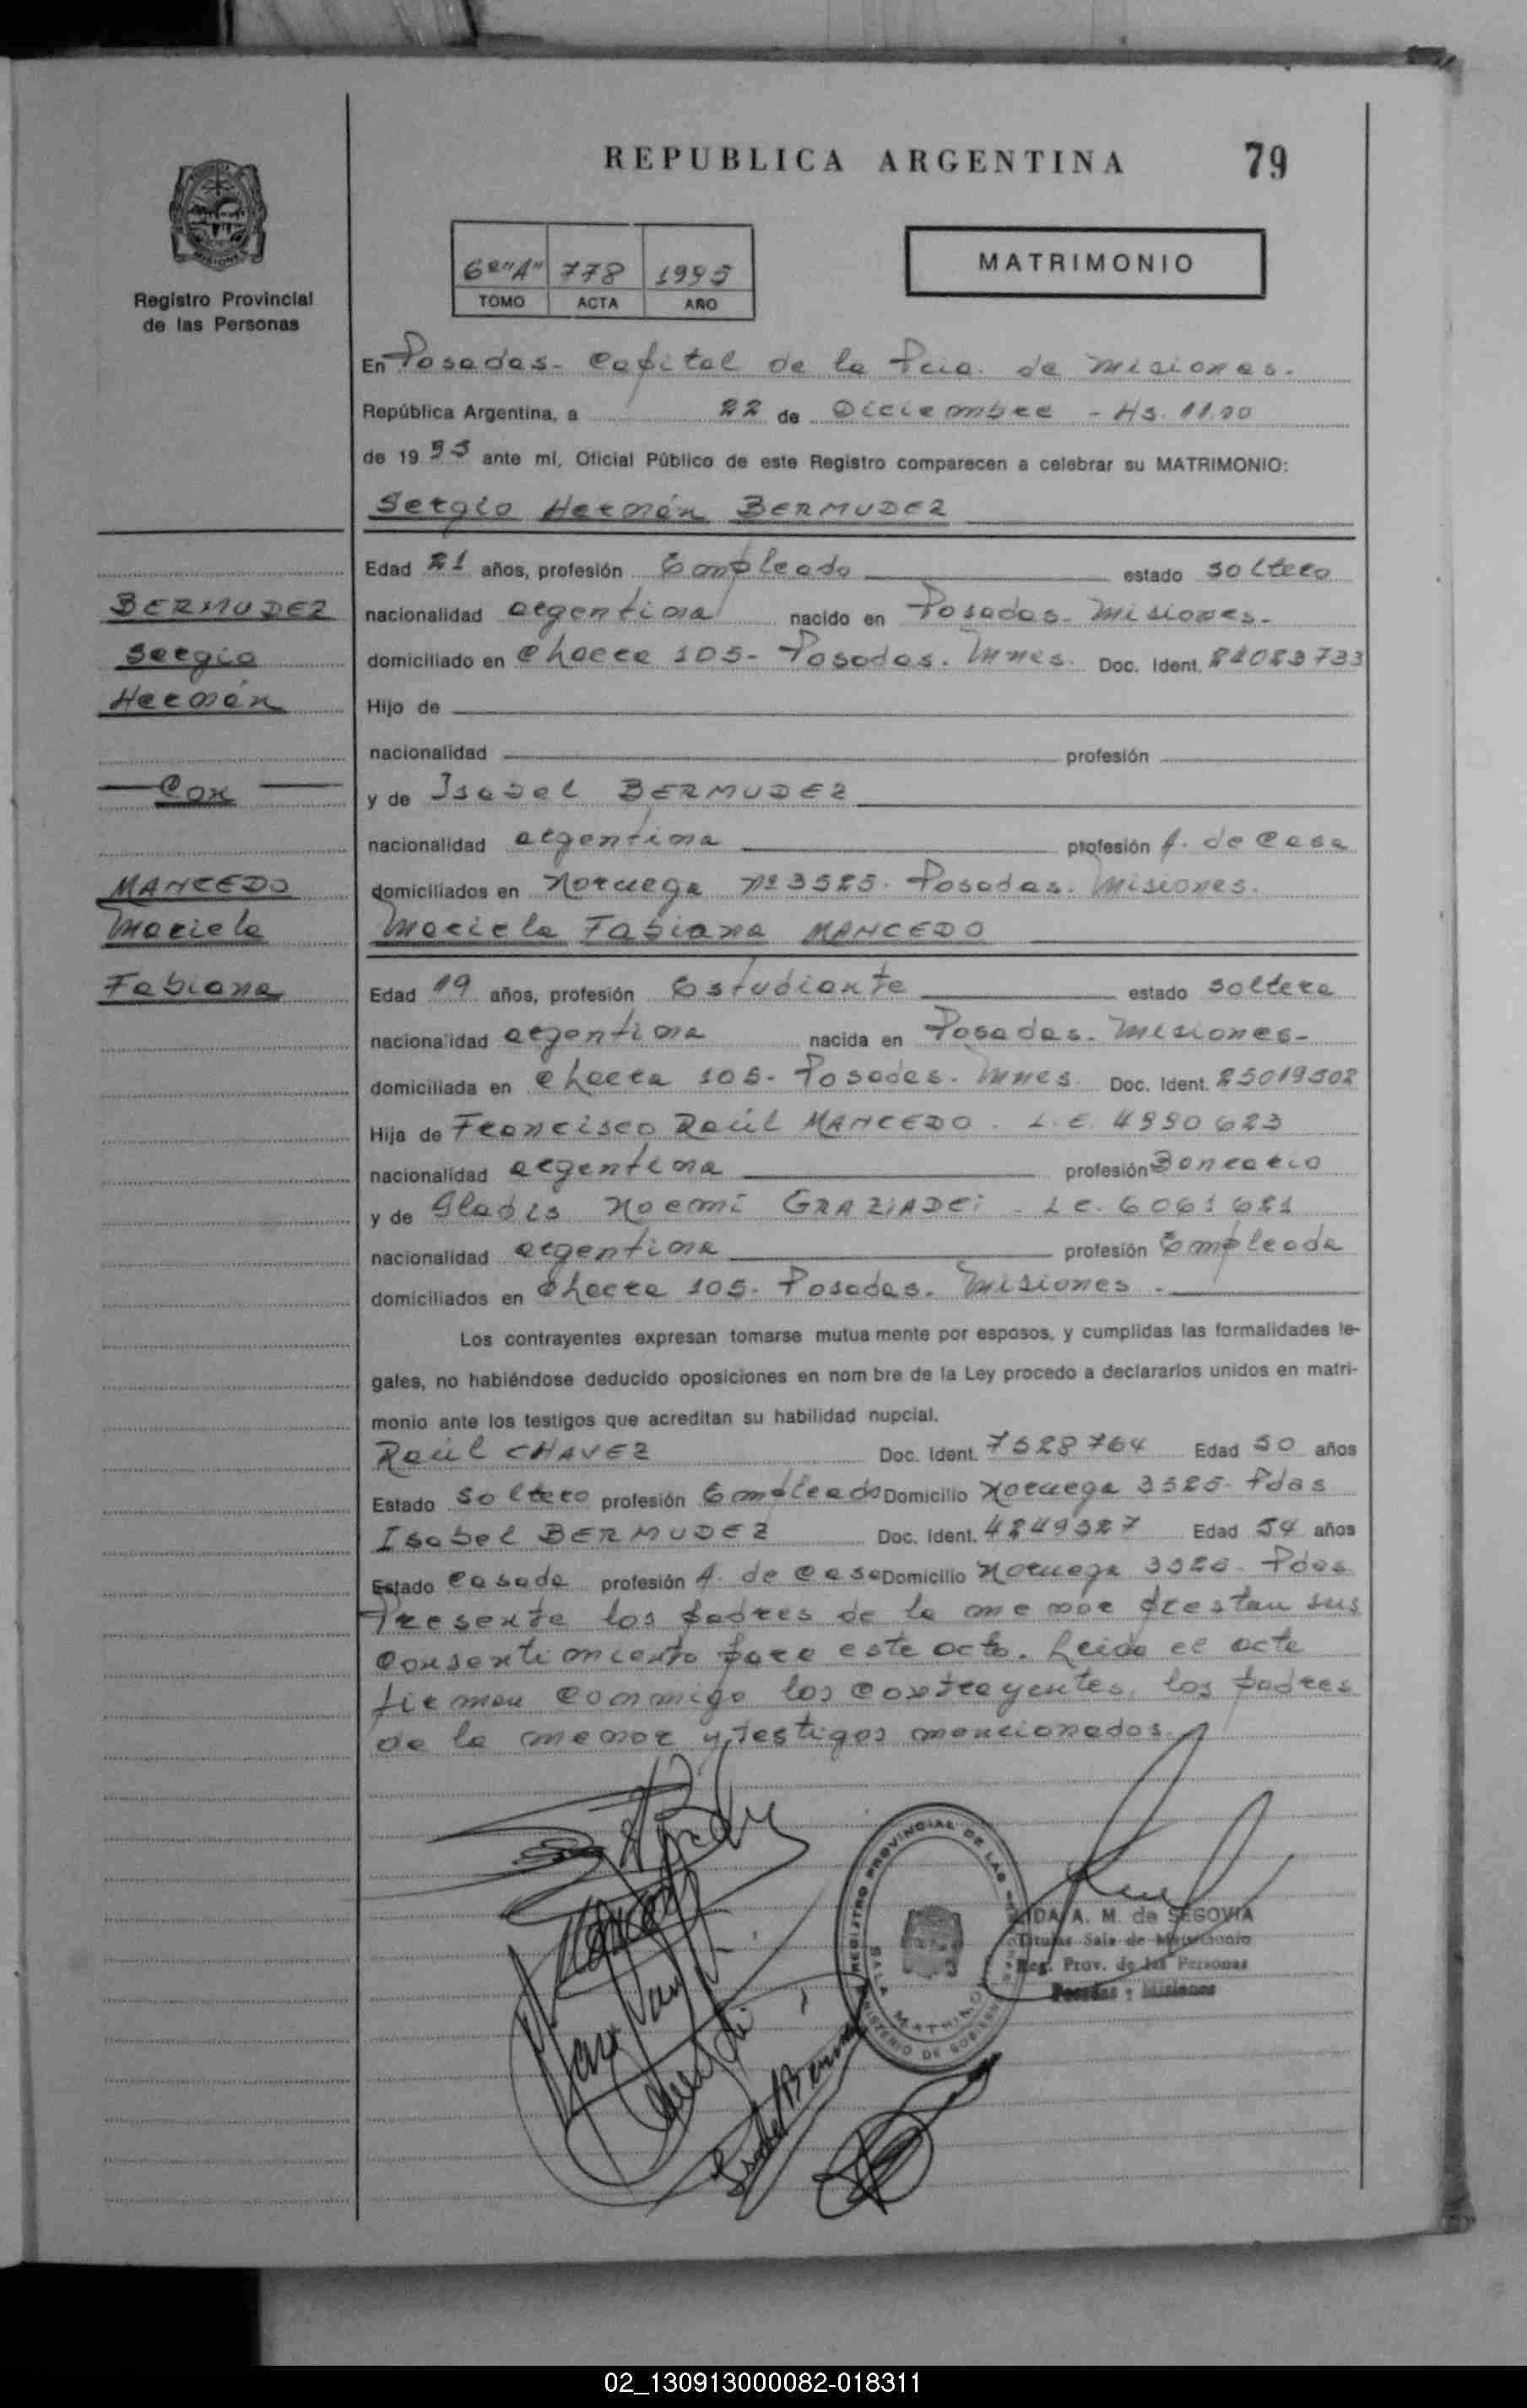 REPUBLICA ARGENTINA 79
MISIONES
Registro Provincial
de las Personas
6º "A" 778 1995
TOMO ACTA AÑO
MATRIMONIO
En Posadas - Capital de la Pcia. de Misiones.
República Argentina, a 22 de Diciembre - Hs. 11.00
de 19 95 ante mí, Oficial Público de este Registro comparecen a celebrar su MATRIMONIO:
Sergio Hernán BERMUDEZ
Edad 21 años, profesión Empleado estado soltero
BERMUDEZ
nacionalidad argentina nacido en Posadas - Misiones -
Sergio
domiciliado en Chacra 105 - Posadas. Mnes. Doc. Ident. 24023733
Hernán
Hijo de
nacionalidad profesión
Con
y de Isabel BERMUDEZ
nacionalidad argentina profesión A. de Casa
MANCEDO
domiciliados en Noruega Nº 3525 - Posadas. Misiones.
Mariela
Mariela Fabiana MANCEDO
Fabiana
Edad 19 años, profesión Estudiante estado soltera
nacionalidad argentina nacida en Posadas. Misiones -
domiciliada en Chacra 105 - Posadas. Mnes. Doc. Ident. 25019502
Hija de Francisco Raúl MANCEDO. L.E. 4990623
nacionalidad argentina profesión Bancario
y de Gladis Noemí GRAZIADEi - L C. 6061621
nacionalidad argentina profesión Empleada
domiciliados en Chacra 105 - Posadas. Misiones.
Los contrayentes expresan tomarse mutua mente por esposos, y cumplidas las formalidades le-
gales, no habiéndose deducido oposiciones en nom bre de la Ley procedo a declararlos unidos en matri-
monio ante los testigos que acreditan su habilidad nupcial.
Raúl CHAVEZ Doc. Ident. 7528764 Edad 50 años
Estado soltero profesión Empleado Domicilio Noruega 3525 - Pdas
Isabel BERMUDEZ Doc. Ident. 4249527 Edad 54 años
Estado Casada profesión A. de Casa Domicilio Noruega 3525 - Pdas.
Presente los padres de la menor prestan sus
Consentimiento para este acto. Leida el acta
firman conmigo los contrayentes, los padres
de la menor y testigos mencionados.
REGISTRO PROVINCIAL DE LAS
SALA MATRIMONIO
MINISTERIO DE GOBIERNO
A. M. de SEGOVIA
Titular Sala de Matrimonio
Reg. Prov. de las Personas
Posadas - Misiones
02_130913000082-018311